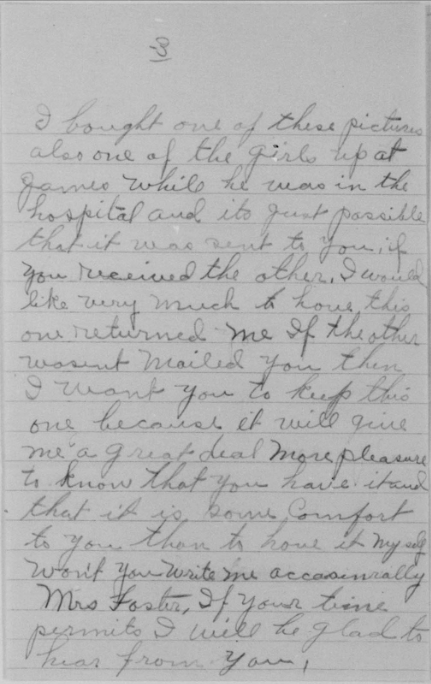 I bought one of these pictures
also one of the girls up at
James while he was in the
hospital and its just possible
that it was sent to you, if
you received the other, I would
like very much to have this
one returned me If the other
wasent mailed you then
I want you to keep this
one because it will give
me a great deal more pleasure
to know that you have it and
that it is some comfort
to you than to have it myself
Won't you write me accasinrally
Mrs Foster, If your time
permits I will be glad to
hear from you,